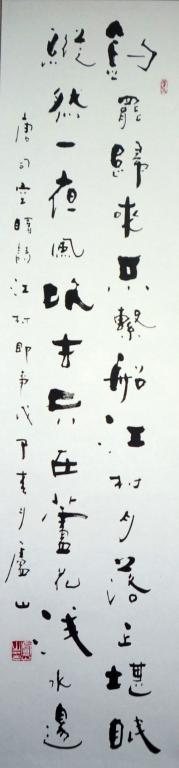 釣罷歸來不繫船江村月落正堪眠
縱然一夜風吹去只在蘆花淺水邊
唐司空曙詩江村即事戊申春月廬山